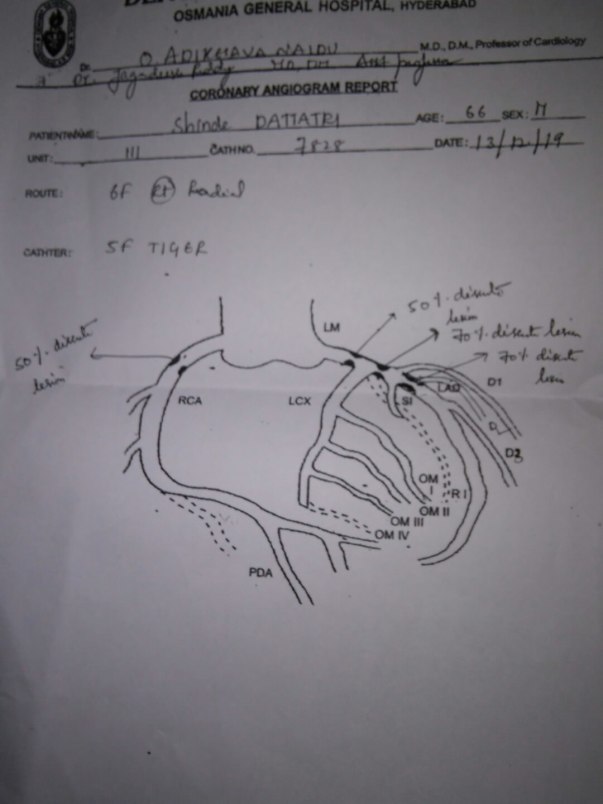 OSMANIA GENERAL HOSPITAL, HYDERABAD
Dr. O. ADIKESHAVA NAIDU M.D., D.M., Professor of Cardiology
Dr. MD, DM
CORONARY ANGIOGRAM REPORT
PATIENT NAME: Shinde DATTATRI AGE: 66 SEX: M
UNIT: III CATH NO. 7828 DATE: 13/12/19
ROUTE: 6F Rt Radial
CATHTER: 5F TIGER
50% discrete lesion
LM
70% discrete lesion
50% discrete lesion
70% discrete lesion
LAD
D1
RCA
LCX
SI
D
D2
OM I
R I
OM II
OM III
OM IV
PDA